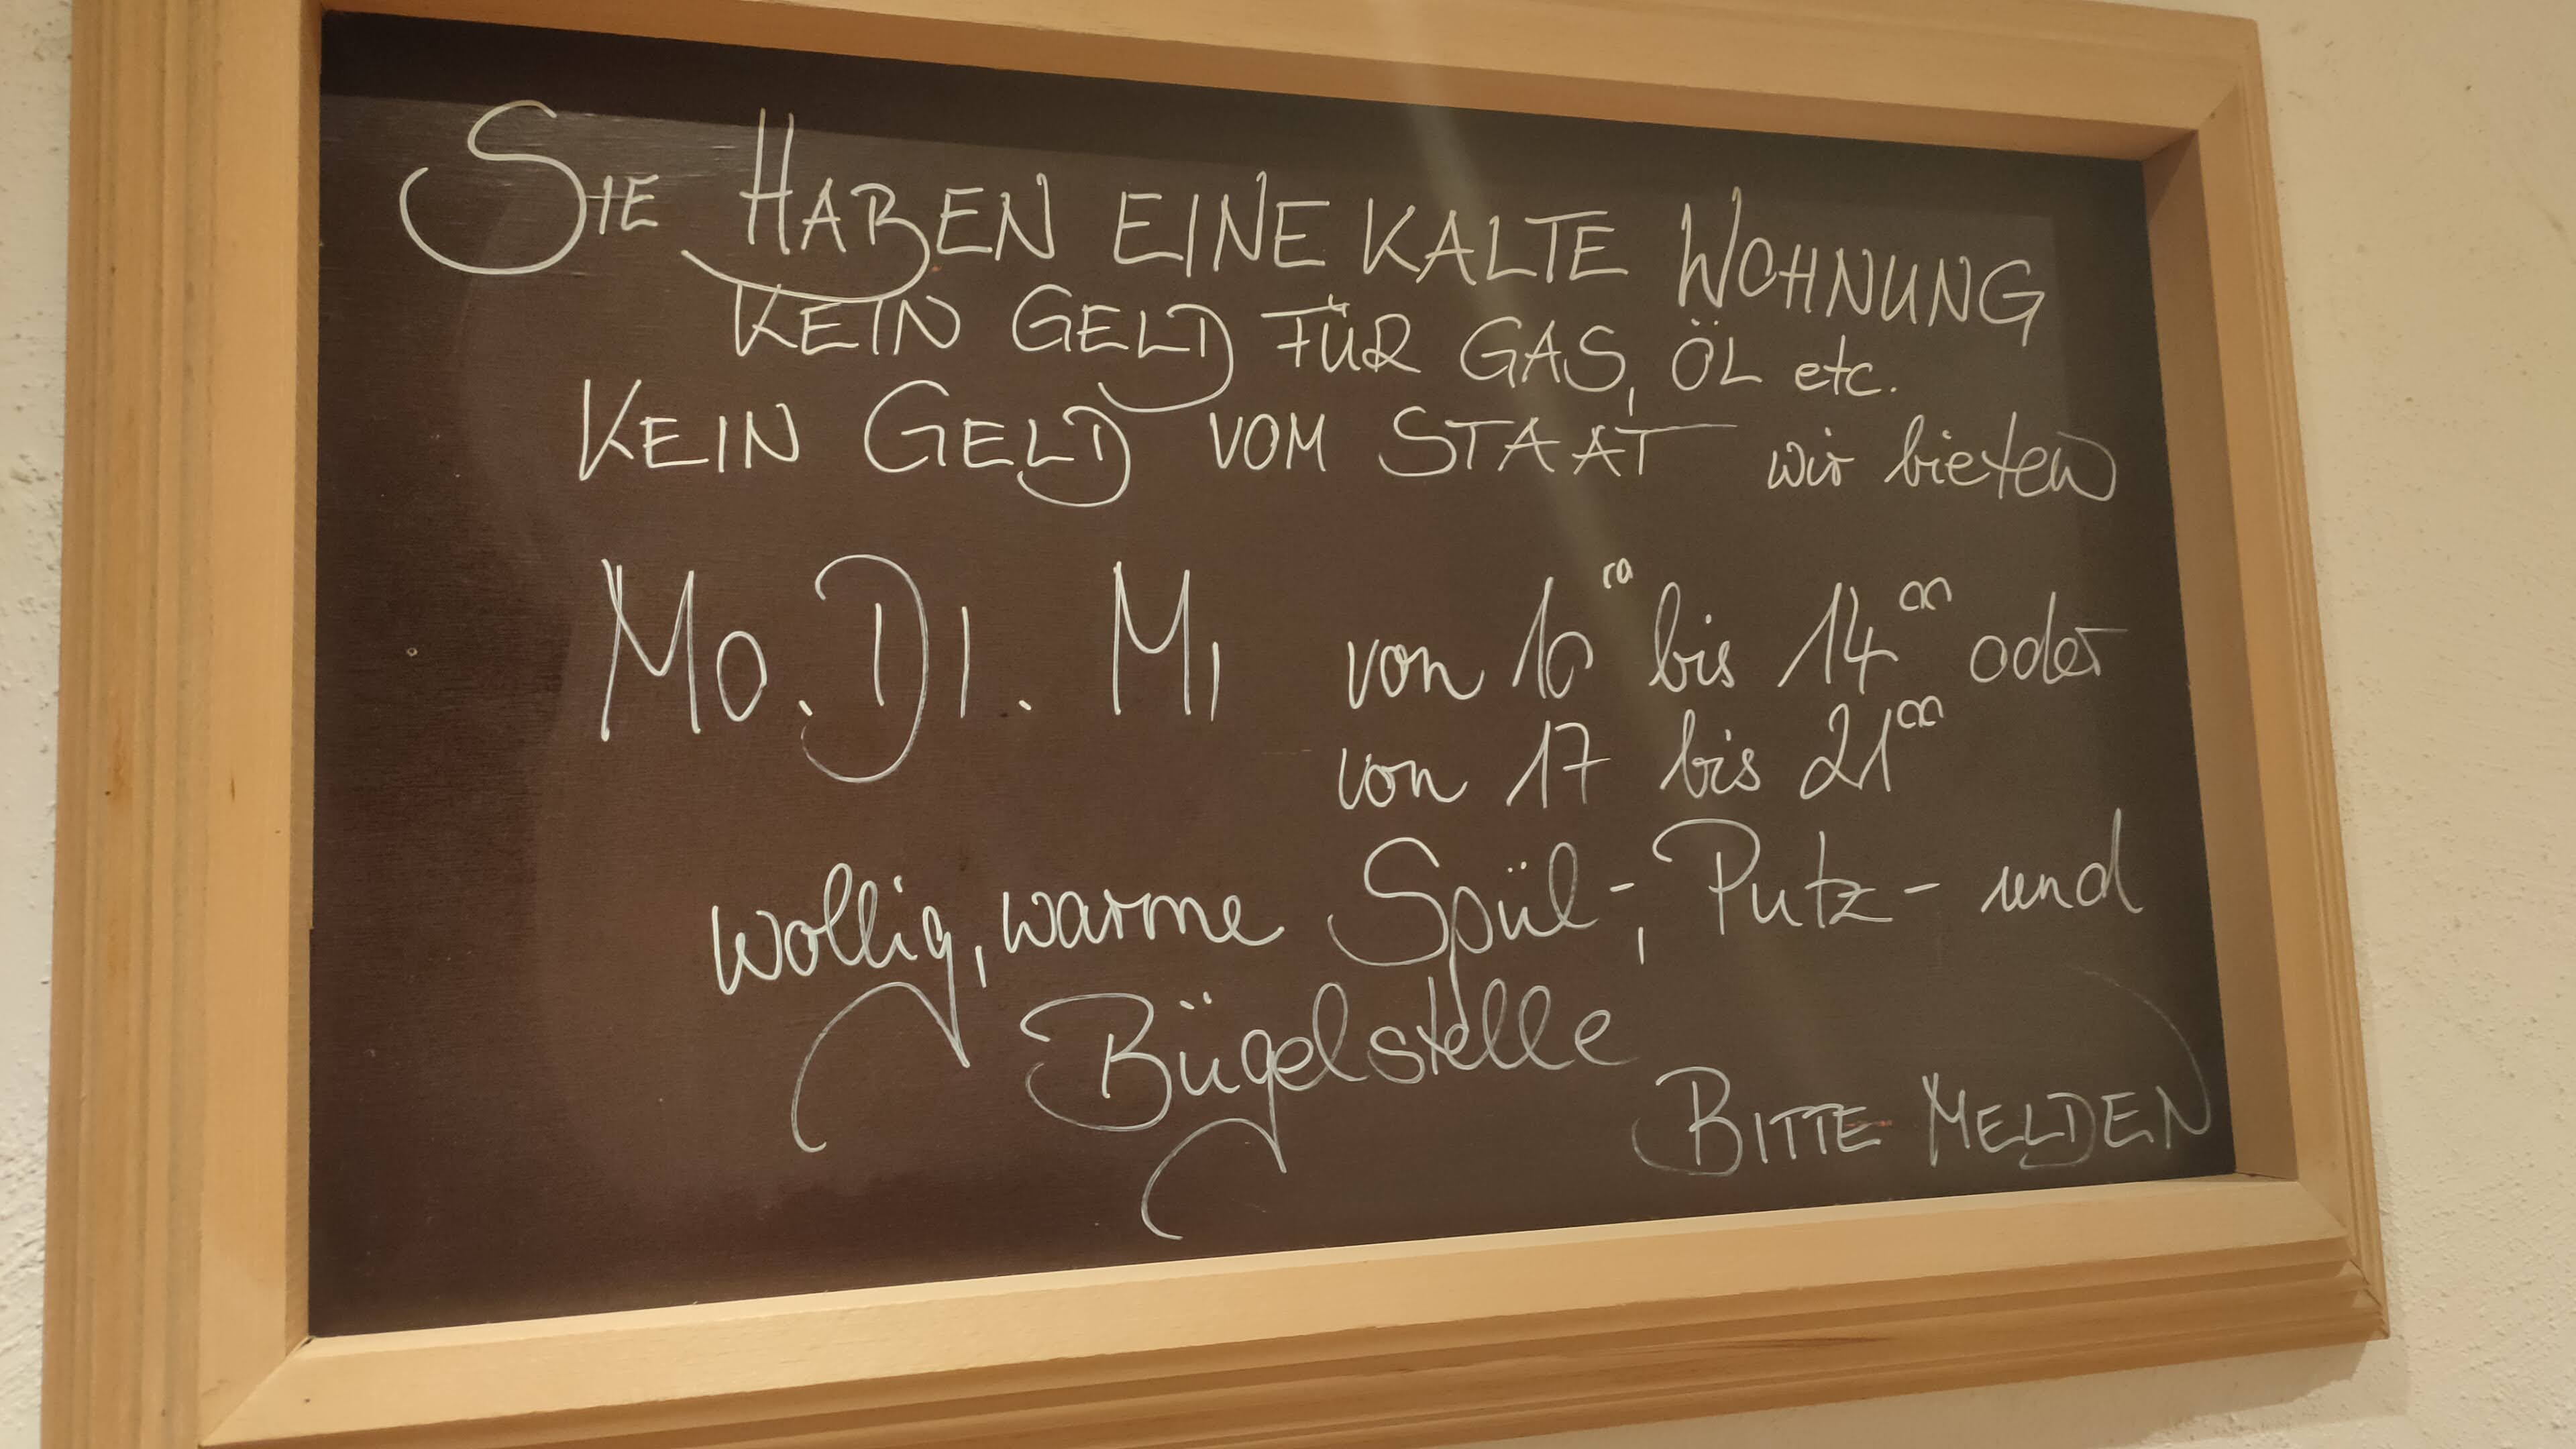 SIE HABEN EINE KALTE WOHNUNG
KEIN GELD FÜR GAS, ÖL etc.
KEIN GELD VOM STAAT wir bieten
MO. DI. MI von 10⁰⁰ bis 14⁰⁰ oder
von 17 bis 21⁰⁰
wollig, warme Spül-, Putz- und
Bügelstelle
BITTE MELDEN